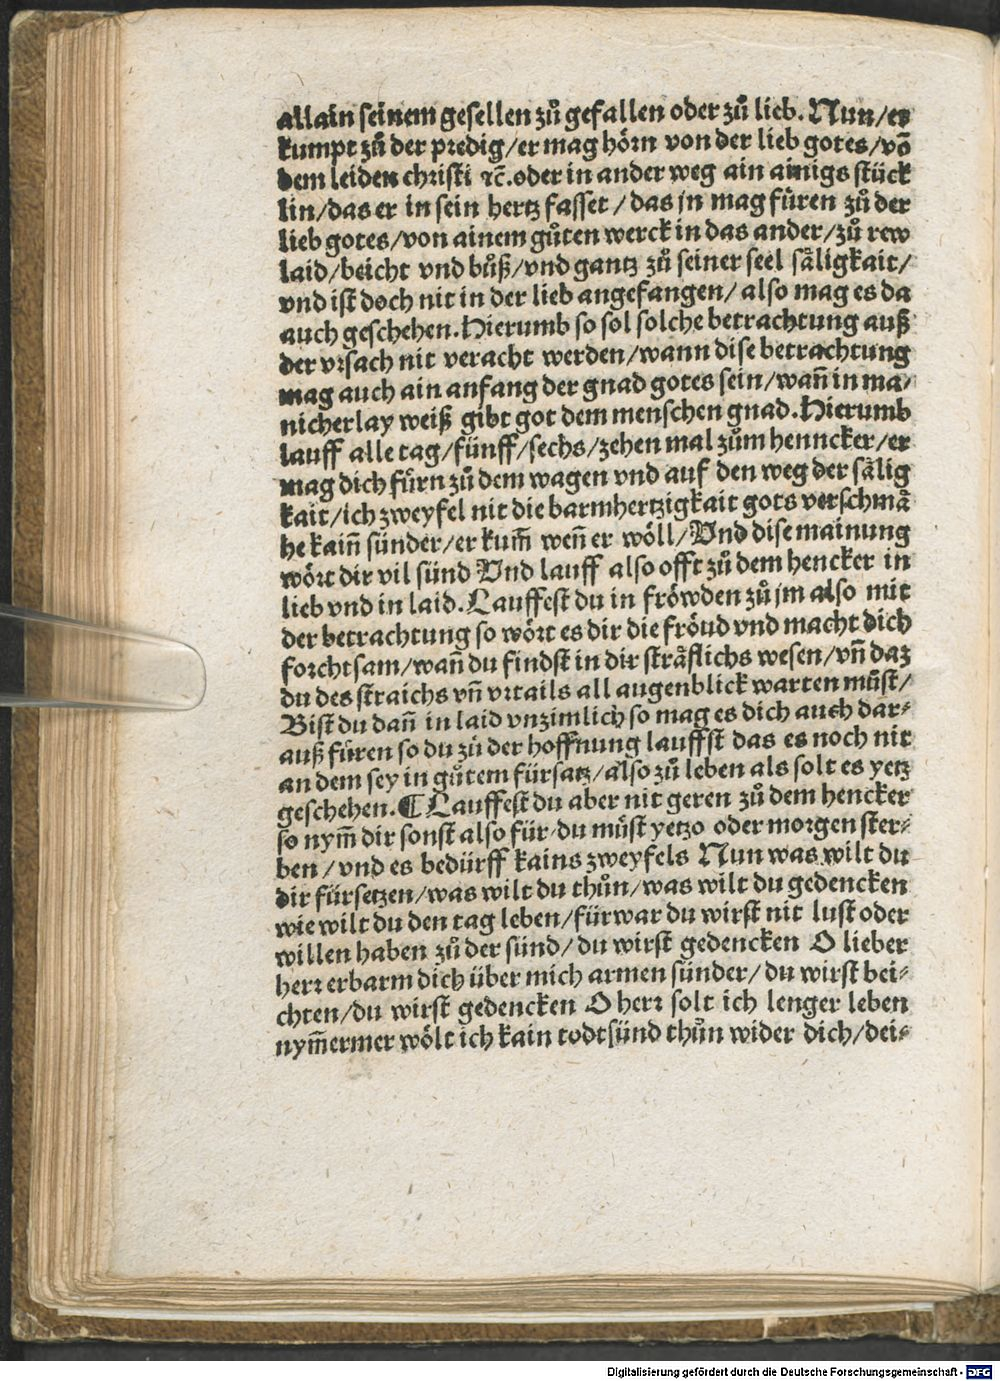 allain seinem gesellen zů gefallen oder zů lieb. Nun/es
kumpt zů der predig/er mag hörn von der lieb gotes/võ
dem leiden christi ⁊c̃. oder in ander weg ain ainigs stück
lin/das er in sein hertz fasset/das jn mag füren zů der
lieb gotes/von ainem gůten werck in das ander/zů rew
laid/beicht vnd bůß/vnd gantz zů seiner seel säligkait/
vnd ist doch nit in der lieb angefangen/also mag es da
auch geschehen. Hierumb so sol solche betrachtung auß
der vrsach nit veracht werden/wann dise betrachtung
mag auch ain anfang der gnad gotes sein/wañ in ma/
nicherlay weiß gibt got dem menschen gnad. Hierumb
lauff alle tag/fünff/sechs/zehen mal zům henncker/er
mag dich fürn zů dem wagen vnd auf den weg der sälig
kait/ich zweyfel nit die barmhertzigkait gots verschmä
he kaiñ sünder/er kum̃ weñ er wöll/Vnd dise mainung
wört dir vil sünd Vnd lauff also offt zů dem hencker in
lieb vnd in laid. Lauffest du in fröwden zů jm also mit
der betrachtung so wört es dir die fröud vnd macht dich
forchtsam/wañ du findst in dir sträflichs wesen/vñ daz
du des straichs vñ vrtails all augenblick warten můst/
Bist du dañ in laid vnzimlich so mag es dich auch dar-
auß füren so du zů der hoffnung lauffst das es noch nit
an dem sey in gůtem fürsatz/also zů leben als solt es yetz
geschehen. ¶ Lauffest du aber nit geren zů dem hencker
so nym̃ dir sonst also für/du můst yetzo oder morgen ster-
ben/vnd es bedürff kains zweyfels Nun was wilt du
dir fürsetzen/was wilt du thůn/was wilt du gedencken
wie wilt du den tag leben/fürwar du wirst nit lust oder
willen haben zů der sünd/du wirst gedencken O lieber
herr erbarm dich über mich armen sünder/du wirst bei-
chten/du wirst gedencken O herr solt ich lenger leben
nym̃ermer wölt ich kain todtsünd thůn wider dich/dei-
Digitalisierung gefördert durch die Deutsche Forschungsgemeinschaft - DFG